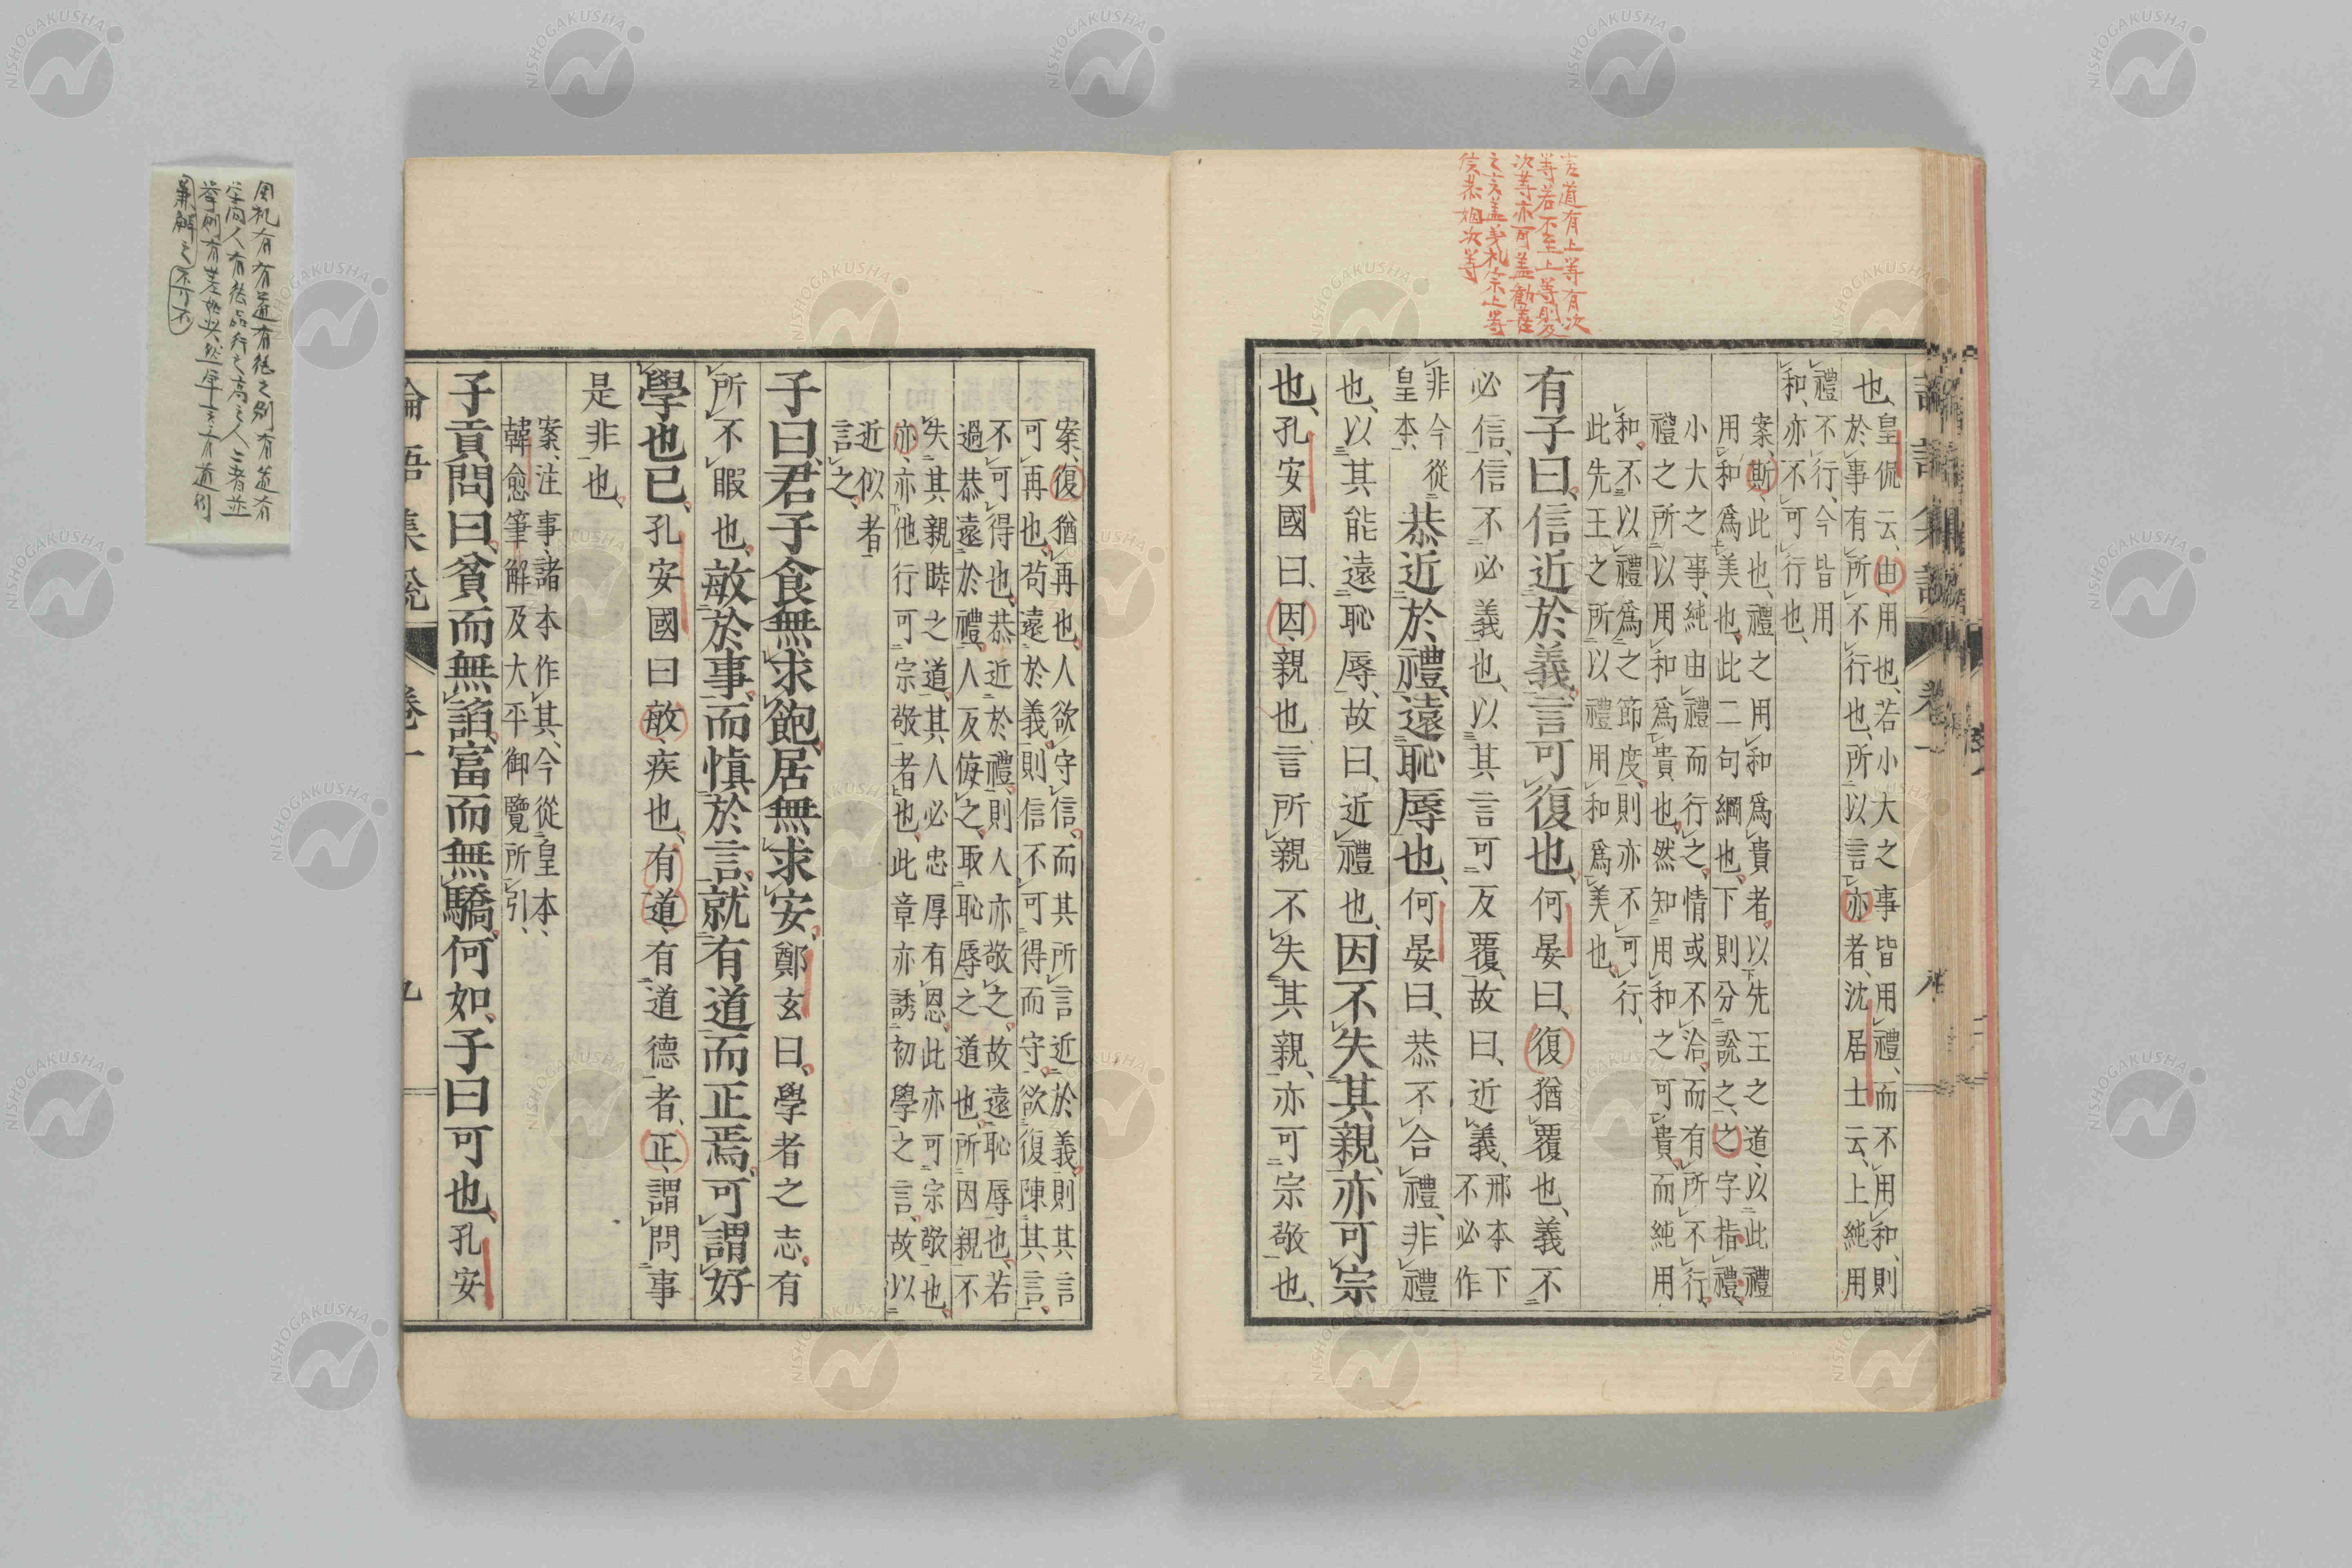 言道有上等有次
等若不至上等則及
次等亦可蓋勸善
之言蓋義礼宗上等
信恭因次等
也、皇侃云、由、用也、若小大之事皆用禮、而不用和、則
於事有所不行也、所以言亦者、沈居士云、上純用
禮不行、今皆用
和、亦不可行也、
案、斯、此也、禮之用和爲貴者、以先王之道、以此禮
用和爲美也、此二句綱也、下則分說之、之字指禮、
小大之事、純由禮而行之、情或不洽、而有所不行、
禮之所以用和爲貴也、然知用和之可貴、而純用
和、不以禮爲之節度、則亦不可行、
此先王之所以禮用和爲美也、
有子曰、信近於義、言可復也、何晏曰、復猶覆也、義不
必信、信不必義也、以其言可反覆、故曰、近義、邢本下
不必作
非今從
皇本、恭近於禮、遠恥辱也、何晏曰、恭不合禮、非禮
也、以其能遠恥辱、故曰、近禮也、因不失其親、亦可宗
也、孔安國曰、因、親也、言所親不失其親、亦可宗敬也、
案、復猶再也、人欲守信、而其所言近於義、則其言
可再也、苟遠於義、則信不可得而守、欲復陳其言、
不可得也、恭近於禮、則人亦敬之、故遠恥辱也、若
過恭遠於禮、人反侮之、取恥辱之道也、所因親不
失其親睦之道、其人必忠厚有恩、此亦可宗敬也、
亦、亦他行可宗敬者也、此章亦誘初學之言、故以
近似者
言之、
子曰、君子食無求飽、居無求安、鄭玄曰、學者之志、有
所不暇也、敏於事、而愼於言、就有道而正焉、可謂好
學也已、孔安國曰敏、疾也、有道、有道德者、正、謂問事
是非也、
案、注事、諸本作其、今從皇本、
韓愈筆解及大平御覽所引、
子貢問曰、貧而無諂、富而無驕、何如、子曰可也、孔安
論語集說 卷一 九
NISHOGAKUSHA